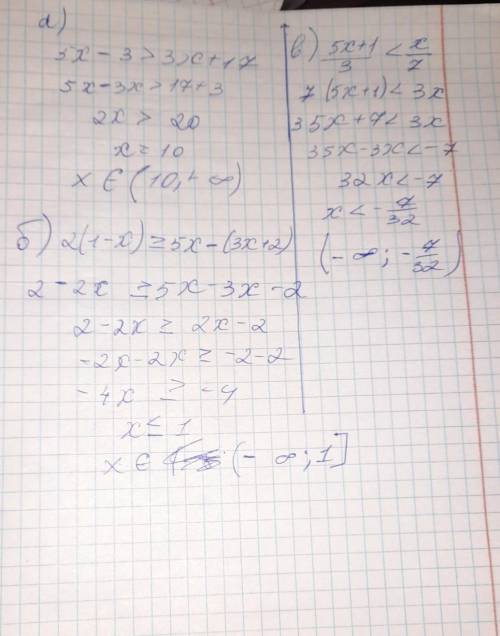 а)
5x - 3 > 3x + 17
5x - 3x > 17 + 3
2x > 20
x = 10
x ∈ (10, + ∞)
б) 2(1-x) ≥ 5x - (3x+2)
2 - 2x ≥ 5x - 3x - 2
2 - 2x ≥ 2x - 2
-2x - 2x ≥ -2 - 2
-4x ≥ -4
x ≤ 1
x ∈ (- ∞; 1]
в) \frac{5x+1}{3} < \frac{x}{7}
7(5x+1) < 3x
35x + 7 < 3x
35x - 3x < -7
32x < -7
x < - \frac{7}{32}
(- ∞; - \frac{7}{32})